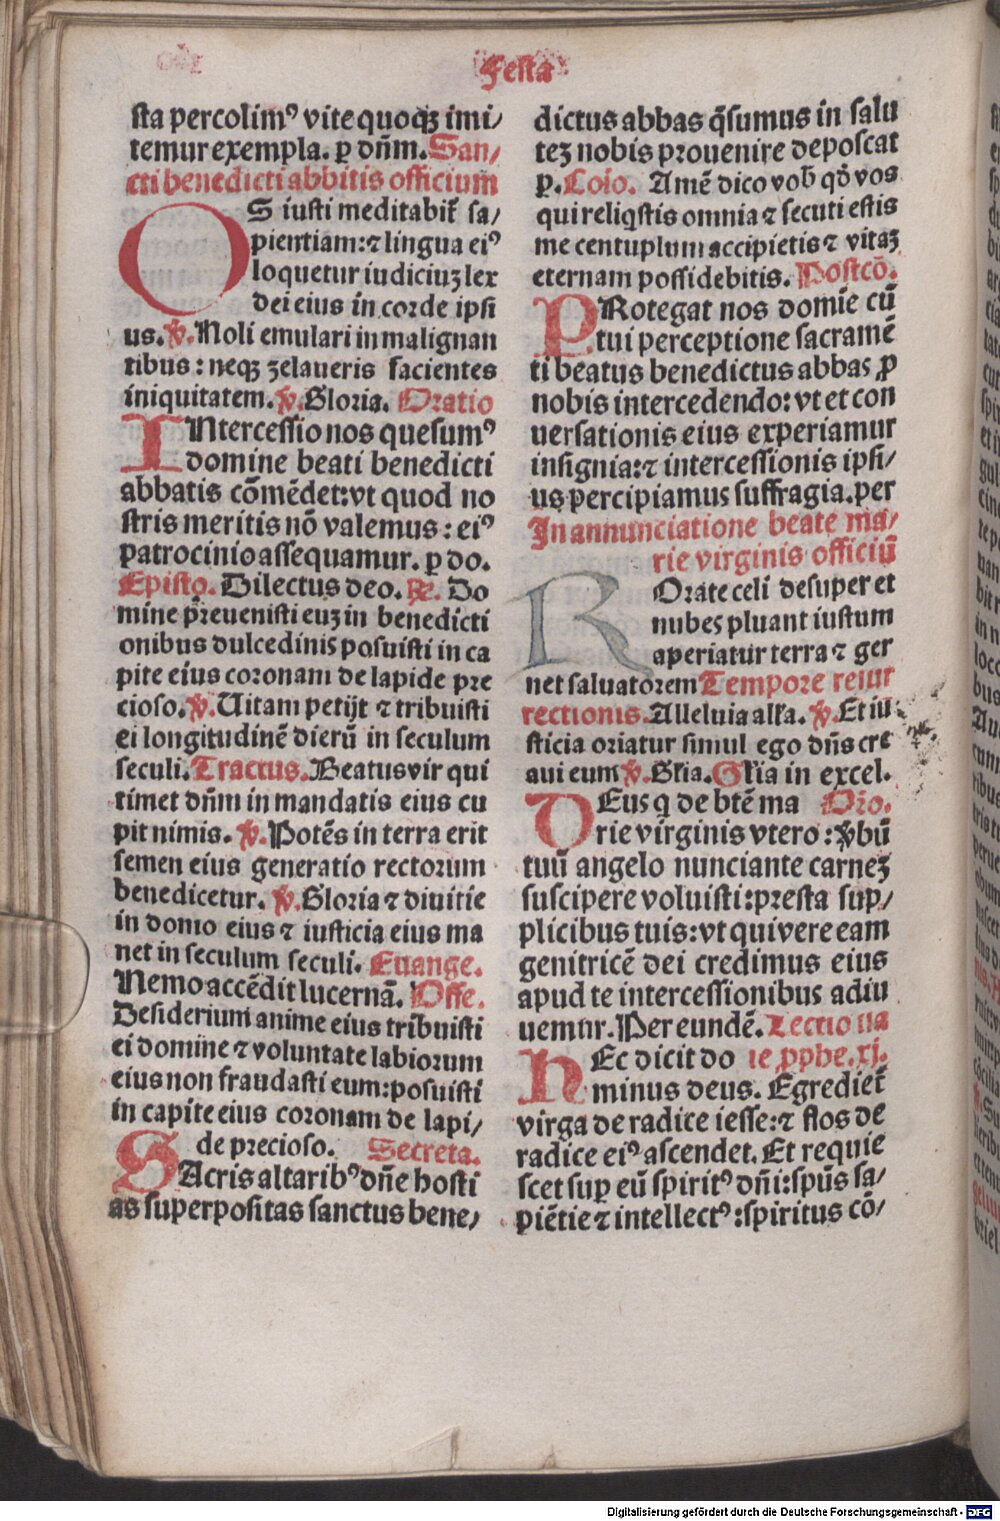 Festa
sta percolimꝰ vite quoqꝫ imi/
temur exempla. ꝑ dn̄m. San/
cti benedicti abbitis officium
OS iusti meditabit̄ sa/
pientiam: ⁊ lingua eiꝰ
loquetur iudiciuꝫ lex
dei eius in corde ipsi
us. ℣. Noli emulari in malignan
tibus: neqꝫ zelaueris facientes
iniquitatem. ℣. Gloria. Oratio
INtercessio nos quesumꝰ
domine beati benedicti
abbatis cōmēdet: vt quod no
stris meritis nō valemus: eiꝰ
patrocinio assequamur. ꝑ do.
Episto. Dilectus deo. ℞. Do
mine p̄reuenisti euꝫ in benedicti
onibus dulcedinis posuisti in ca
pite eius coronam de lapide pre
cioso. ℣. Uitam petijt ⁊ tribuisti
ei longitudinē dierū in seculum
seculi. Tractus. Beatus vir qui
timet dn̄m in mandatis eius cu
pit nimis. ℣. Potēs in terra erit
semen eius generatio rectorum
benedicetur. ℣. Gloria ⁊ diuitie
in domo eius ⁊ iusticia eius ma
net in seculum seculi. Euange.
Nemo accēdit lucernā. Offe.
Desiderium anime eius tribuisti
ei domine ⁊ voluntate labiorum
eius non fraudasti eum: posuisti
in capite eius coronam de lapi/
de precioso. Secreta.
SAcris altaribꝰ dn̄e hosti
as superpositas sanctus bene/
dictus abbas q̄sumus in salu
teꝫ nobis prouenire deposcat
ꝑ. Cōio. Amē dico vob̄ qd̄ vos
qui reliq̄stis omnia ⁊ secuti estis
me centuplum accipietis ⁊ vitaꝫ
eternam possidebitis. Postcō.
PRotegat nos domīe cū
tui perceptione sacramē
ti beatus benedictus abbas ꝓ
nobis intercedendo: vt et con
uersationis eius experiamur
insignia: ⁊ intercessionis ipsi/
us percipiamus suffragia. per
In annunciatione beate ma/
rie virginis officiū
ROrate celi desuper et
nubes pluant iustum
aperiatur terra ⁊ ger
net saluatorem Tempore resur
rectionis. Alleluia all'a. ℣. Et iu
sticia oriatur simul ego dn̄s cre
aui eum ℣. Gl'ia. Gl'ia in excel.
DEus q̄ de btē ma Orō.
rie virginis vtero: v̄bū
tuū angelo nunciante carneꝫ
suscipere voluisti: presta sup/
plicibus tuis: vt qui vere eam
genitricē dei credimus eius
apud te intercessionibus adiu
uemur. Per eundē. Lectio isa
HEc dicit do ie ꝓphe. xj.
minus deus. Egrediet̄
virga de radice iesse: ⁊ flos de
radice eiꝰ ascendet. Et requie
scet suꝑ eū spiritꝰ dn̄i: spūs sa/
piētie ⁊ intellectꝰ: spiritus cō/
Digitalisierung gefördert durch die Deutsche Forschungsgemeinschaft - DFG